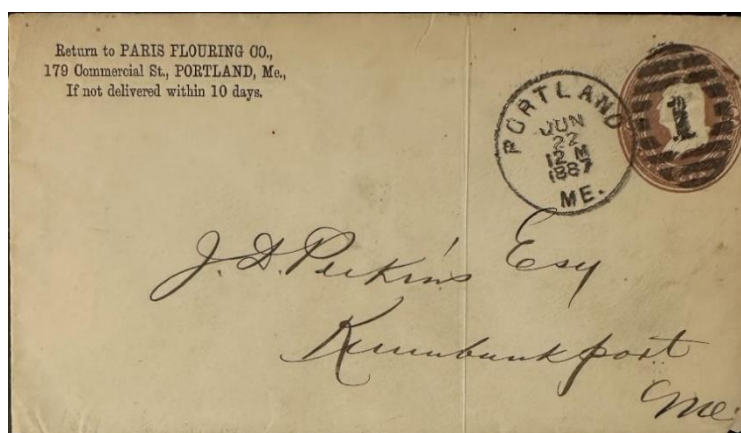 Return to PARIS FLOURING CO.,
179 Commercial St., PORTLAND, Me.,
If not delivered within 10 days.
PORTLAND
JUN
22
12 M
1887
ME.
1
J. D. Perkins Esq
Kennebunkport
Me